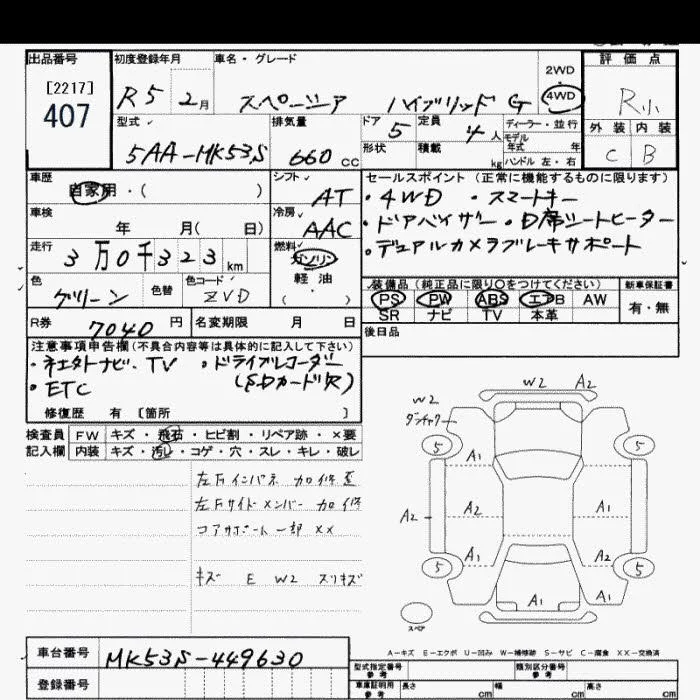 出品番号 初度登録年月 車名・グレード 評価点
[2217] 407
R5 2月 スペーシア ハイブリッド G 2WD・4WD R小
型式 排気量 ドア 5 定員 4人 ディーラー・並行 外装 内装
5AA-MK53S 660cc 形状 積載 kg モデル年式 年 C B
ハンドル 左・右
車歴 自家用・( ) シフト AT セールスポイント (正常に機能するものに限ります)
車検 年 月( 日) 冷房 AAC ・4WD ・スマートキー
・ドアバイザー ・D席シートヒーター
走行 3万0千323km 燃料 ガソリン 軽油 ・( ) ・デュアルカメラブレーキサポート
色 グリーン 色替 色コード ZVD 装備品 (純正品に限り○をつけてください) 新車保証書
PS PW ABS エアB AW 有・無
SR ナビ TV 本革
R券 7040円 名変期限 月 日 後日品
注意事項申告欄(不具合内容等は具体的に記入して下さい)
・ネエタトナビ、TV ・ドライブレコーダー
・ETC (SDカード欠)
修復歴 有 [箇所 ]
検査員記入欄 FW キズ・飛石・ヒビ割・リペア跡・×要
内装 キズ・汚れ・コゲ・穴・スレ・キレ・破レ
左Fインパネ 加修歪
左Fサイドメンバー 加修
コアサポート一部 XX
キズ E W2 スリキズ
W2 A2
W2
5 A1 5
A2 A2 A1
5 A1 A2 5
A1 A1
スペア
A−キズ E−エクボ U−凹み W−補修跡 S−サビ C−腐食 XX−交換済
車台番号 MK53S-449630
登録番号
型式指定番号 参考 類別区分番号 参考
車庫証明用 参考 長さ cm 幅 cm 高さ cm